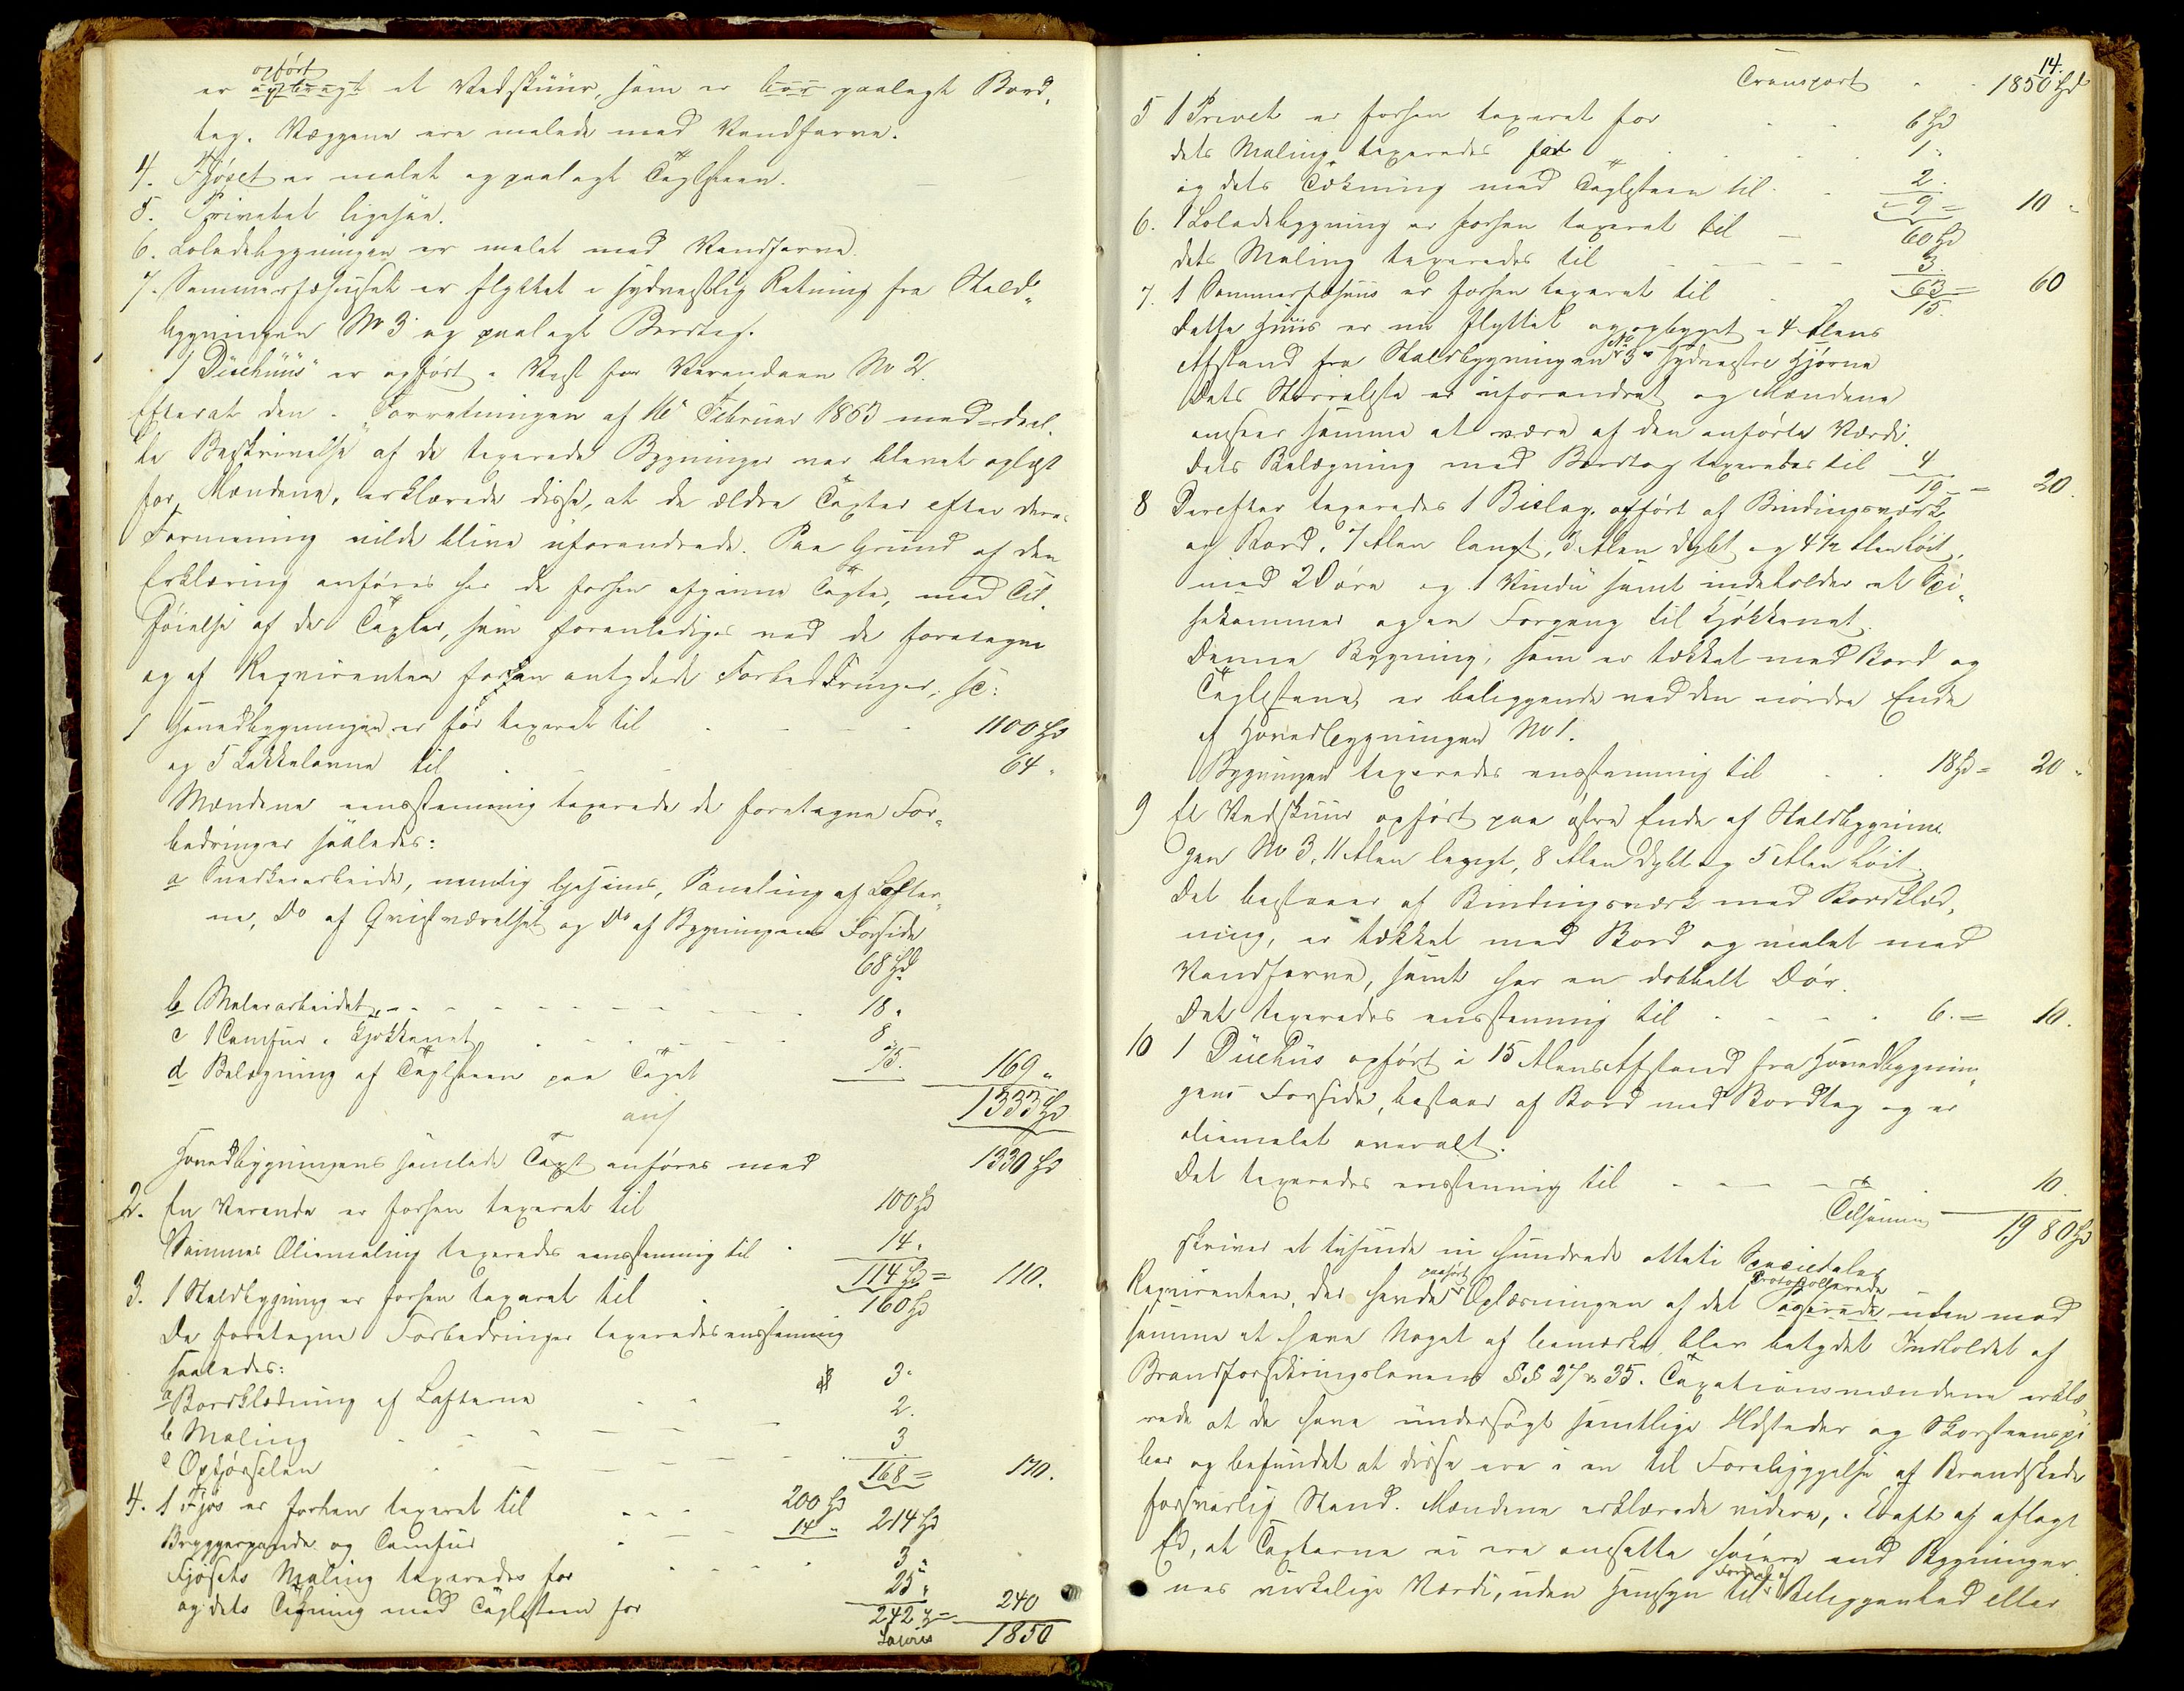 opført
er opbragt et Vedskuur, som er bør paalagt Bord,
tag. Væggene ere malede med Vandfarve.
4. Fjøset er malet og paalagt Tagsteen.
5. Privetet ligesaa.
6. Loladebygningen er malet med Vandfarve.
7. Sommerfæhuset er flyttet i sydvestlig Retning fra Stald„
bygningen No 3 og paalagt Bordtag.
1 Duehuus er opført i Vest for Verandaen No 2.
Efterat den i Forretningen af 16 Februar 1863 meddeel„
te Beskrivelse af de taxerede Bygninger var blevet oplæst
for Mændene, erklærede disse, at de ældre Taxter efter deres
Formening vilde blive uforandrede. Paa Grund af den
Erklæring anføres her de forhen afgivne Taxter, med Til„
føielse af de Taxter, som foranlediges ved de foretagne
og af Reqvirenten forhen antydede Forbedringer, sc:
1 Hovedbygningen er før taxeret til 1100 Spd
og 5 Kakkelovne til 64 „
Mændene eensstemmig taxerede de foretagne For„
bedringer saaledes:
a Snedkerarbeide, nemlig Gesims, Paneling af Lofter„
ne, Do af Qvistværelset og Do af Bygningens Forside
68 Spd
b Malerarbeidet 18 „
c 1 Comfur i Kjøkkenet 8
d Belægning af Taglsteen paa Taget 75. 169 „
1333 Spd
Hovedbygningens samlede Taxt anføres med 1330 Spd
2. En Veranda er forhen taxeret til 100 Spd
Sammes Oliemaling taxeredes eensstemmig til 14 „
114 Spd = 110.
3. 1 Staldbygning er forhen taxeret til 160 Spd
De foretagne Forbedringer taxeredes eensstemmig
saaledes:
a Bordklædning af Lofterne 3 „
b Maling 2.
c Opførselen 3
168 = 170.
4. 1 Fjøs er forhen taxeret til 200 Spd
Bryggerpande og Comfur 14 „ 214 Spd
Fjøsets Maling taxeredes for 3 „
og dets Tækning med Taglsteen for 25 „
242 „ = 240
Lateris 1850
14.
Transport 1850 Spd
5 1 Privet er forhen taxeret for 6 Spd
dets Maling taxeredes for 1 „
og dets Tækning med Taglsteen til 2.
9 = 10 „
6. 1 Loladebygning er forhen taxeret til 60 Spd
dets Maling taxeredes til 3
63 = 60
7. 1 Sommerfæhuus er forhen taxeret til 15.
Dette Huus er nu flyttet og opbygget i 4 Alens
No
Afstand fra Staldbygningens 3 sydvestre Hjørne
Dets Størrelse er uforandret og Mændene
ansaae samme at være af den anførte Værdi.
Dets Belægning med Bordtag taxeredes til 4
19 = 20.
8 Derefter taxeredes 1 Bislag, opført af Bindingsværk
og Bord, 7 Alen langt, 3 Alen dybt og 4 1/2 Alen høit,
med 2 Døre og 1 Vindu samt indeholder et Spi„
sekammer og en Forgang til Kjøkkenet.
Denne Bygning, som er tækket med Bord og
Taglsteen, er beliggende ved den nordre Ende
af Hovedbygningen No 1.
Bygningen taxeredes eensstemmig til 18 Spd = 20 „
9 Et Vedskuur opført paa østre Ende af Staldbygnin„
gen No 3, 11 Alen langt, 8 Alen dybt og 5 Alen høit.
Det bestaaer af Bindingsværk med Bordklæd„
ning, er tækket med Bord og malet med
Vandfarve, samt har en dobbelt Dør.
Det taxeredes eensstemmig til 6. = 10.
10 1 Duehus opført i 15 Alens Afstand fra Hovedbygnin„
gens Forside, bestaaer af Bord med Bordtag og er
oliemalet overalt.
Det taxeredes eensstemmig til 10.
Tilsammen 1980 Spd
skriver et tusinde ni hundrede otteti Speciedaler
paahørt Protokollerede
Reqvirenten, der havde Oplæsningen af det Passerede uden med
samme at have Noget at bemærke, blev betydet Indholdet af
Brandforsikringslovens §§ 27 & 35. Taxationsmændene erklæ„
rede at de have undersøgt samtlige Ildsteder og Skorsteenspi
ber og befundet at disse ere i en til Forebyggelse af Brandskade
forsvarlig Stand. Mændene erklærede videre, i Kraft af aflagt
Ed, at Taxterne ei ere ansatte høiere end Bygninger„
nes virkelige Værdi, uden Hensyn til Beliggenhed eller